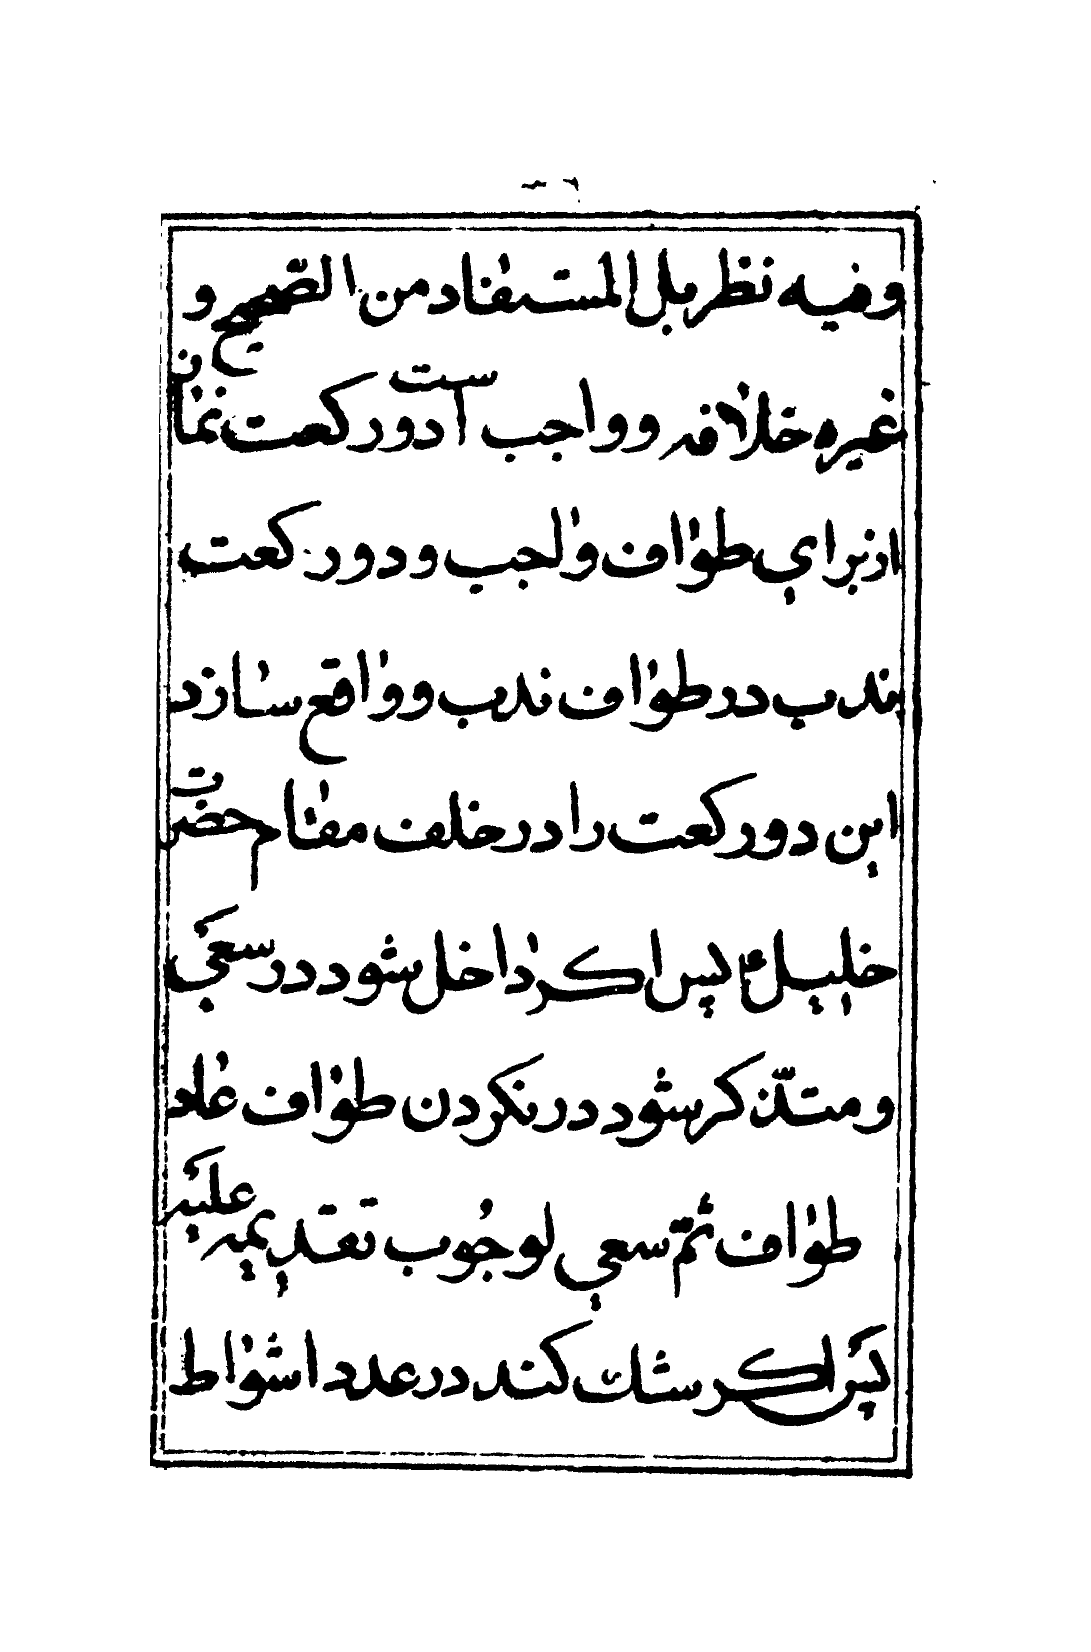 وفيه نظر بل المستفاد من الصحيح و
غيره خلافه و واجب است دو ركعت نماز
از براي طواف واجب و دو ركعت
ندب در طواف ندب و واقع سازد
اين دو ركعت را در خلف مقام حضرت
خليل ع پس اكر داخل شود در سعي
و متذكر شود در نكردن طواف عاد
طواف ثم سعي لوجوب تقديمه عليه
پس اكر شك كند در عدد اشواط